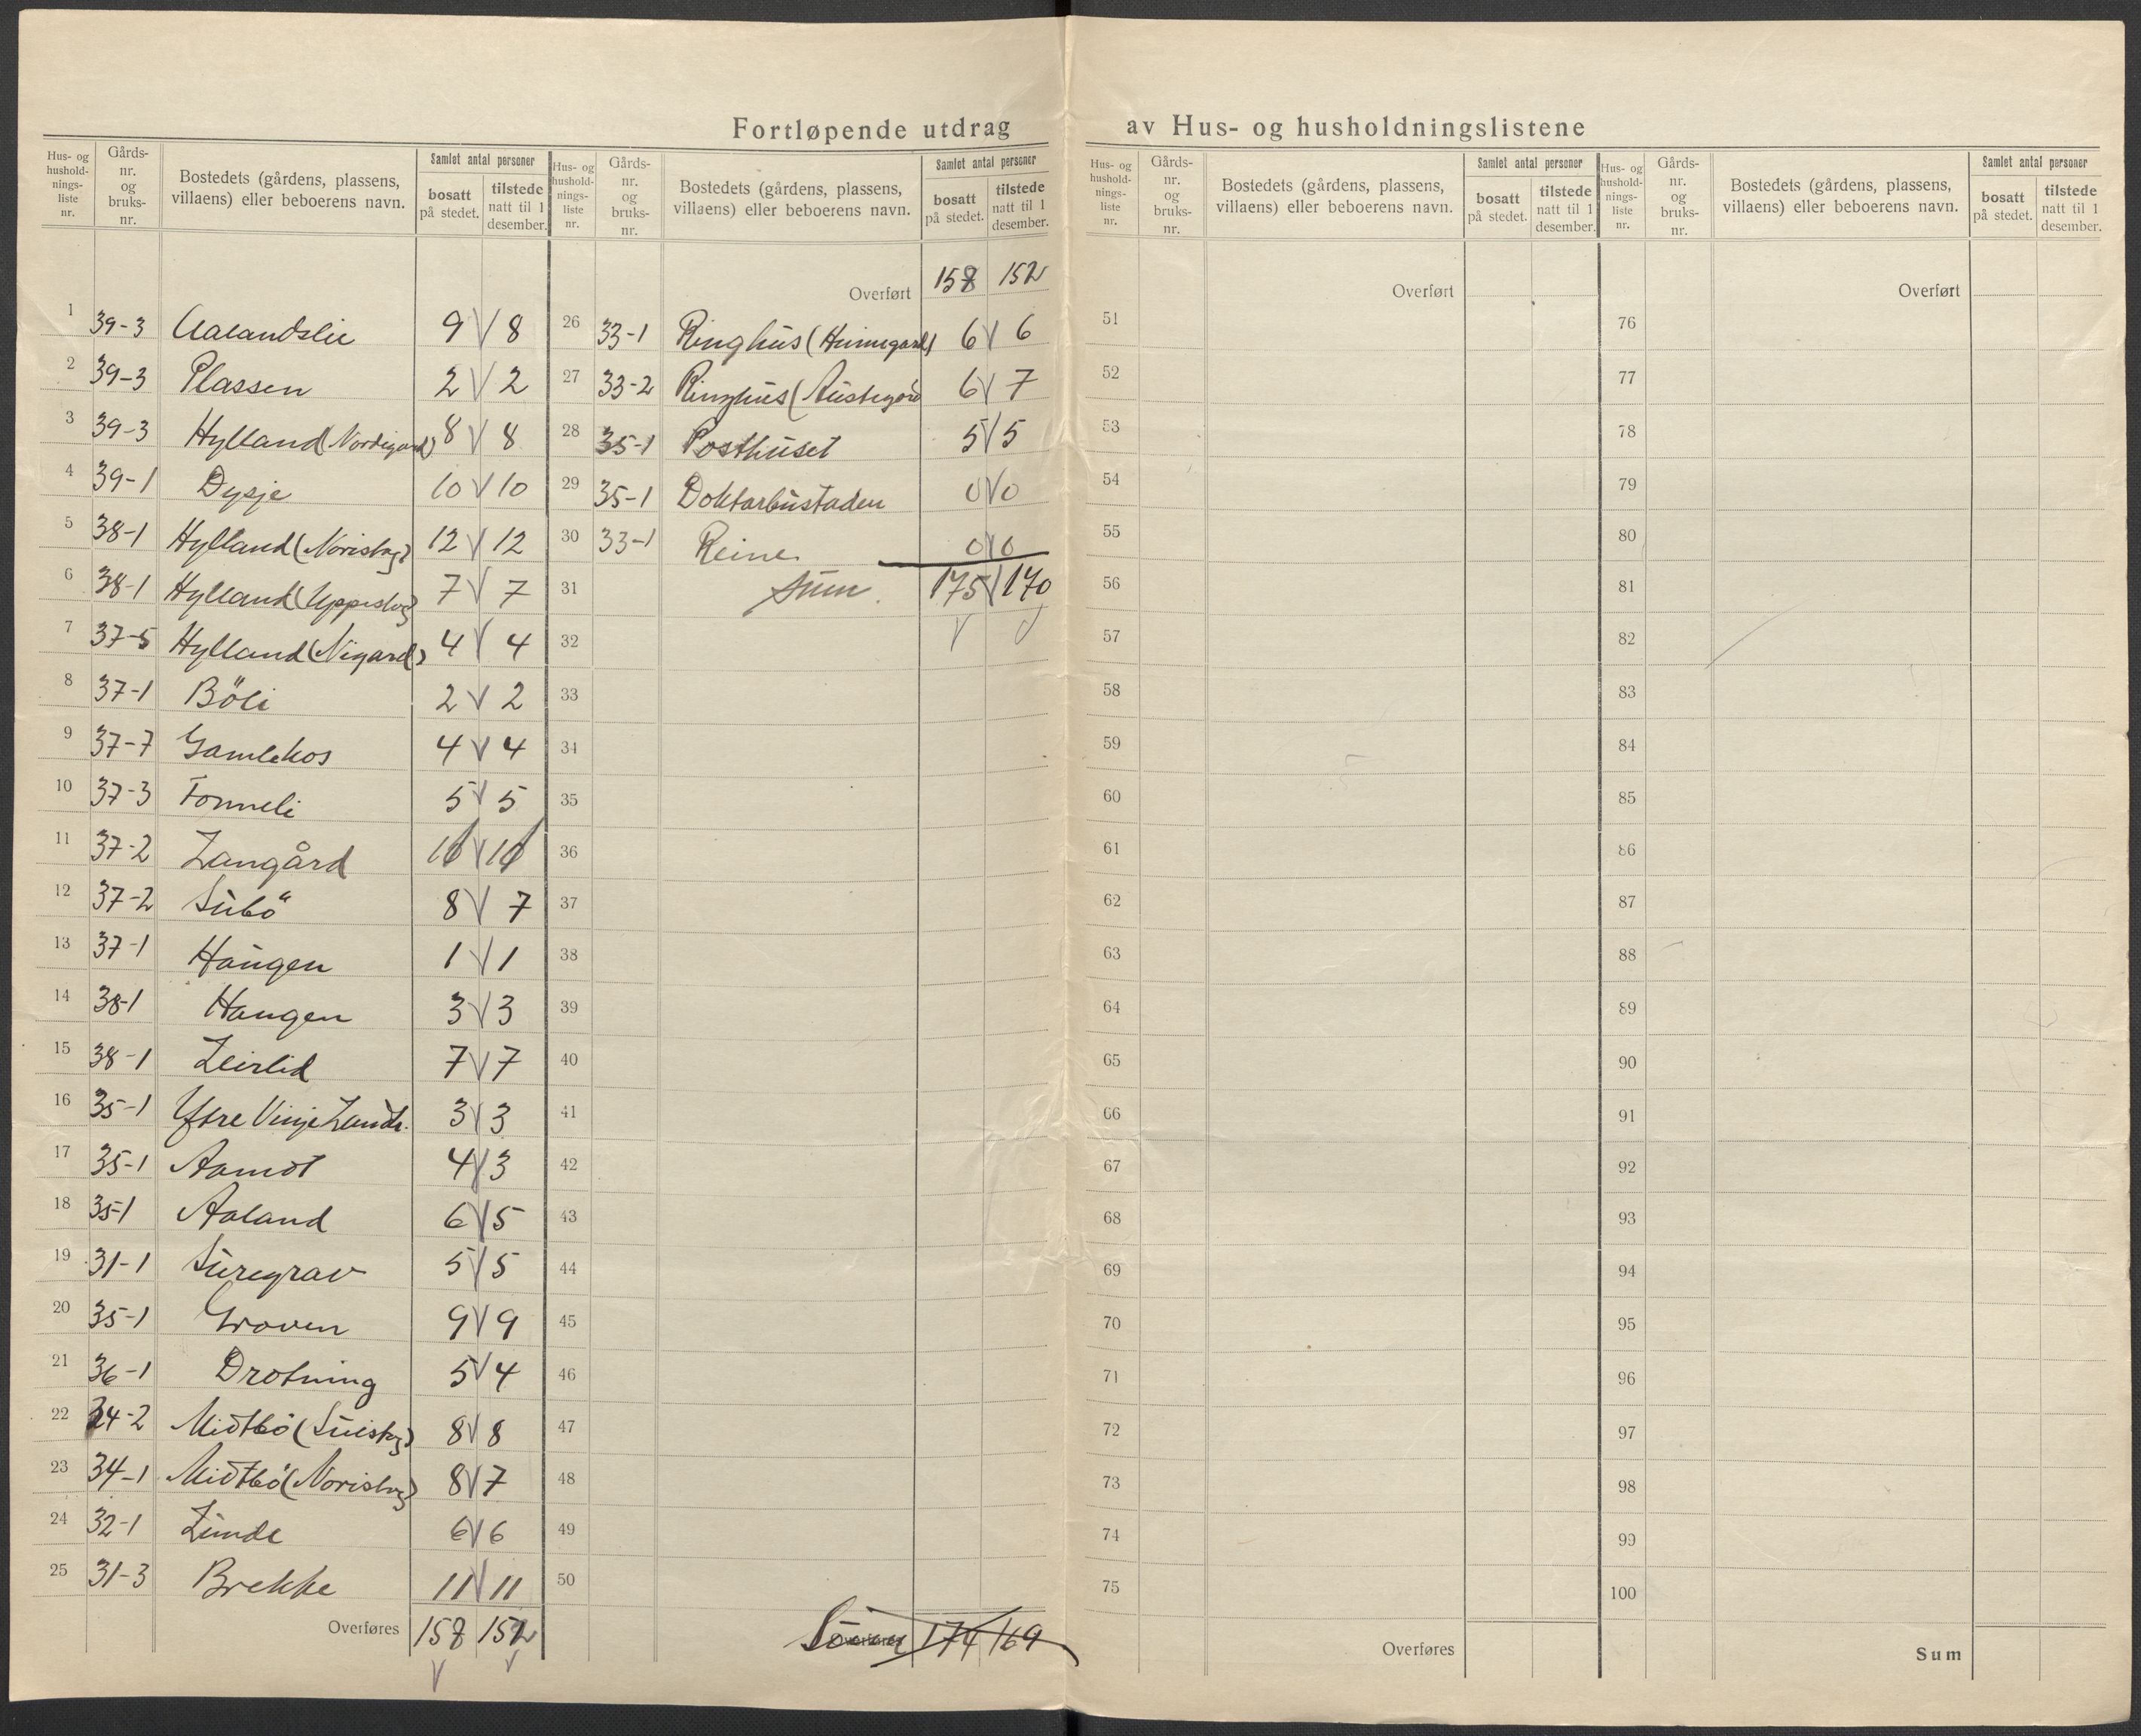 Fortløpende utdrag av Hus- og husholdningslistene
Hus- og hushold-nings-liste nr. Gårds-nr. og bruks-nr. Bostedets (gårdens, plassens, villaens) eller beboerens navn. Samlet antal personer bosatt på stedet. tilstede natt til 1 desember.
1 39-3 Aalandslie 9 V 8
2 39-3 Plassen 2 V 2
3 39-3 Hylland (Nordigard) 8 V 8
4 39-1 Dysje 10 V 10
5 38-1 Hylland (Noristog) 12 V 12
6 38-1 Hylland (Uppistog) 7 V 7
7 37-5 Hylland (Nigard) 4 V 4
8 37-1 Böli 2 V 2
9 37-7 Gamlekos 4 V 4
10 37-3 Fonneli 5 V 5
11 37-2 Langård 10 V 10
12 37-2 Subö 8 V 7
13 37-1 Haugen 1 V 1
14 38-1 Haugen 3 V 3
15 38-1 Leirlid 7 V 7
16 35-1 Ytre Vinje Landh. 3 V 3
17 35-1 Aamot 4 V 3
18 35-1 Aaland 6 V 5
19 31-1 Suregrav 5 V 5
20 35-1 Groven 9 V 9
21 36-1 Drotning 5 V 4
22 34-2 Midtbö (Suistog) 8 V 8
23 34-1 Midtbö (Noristog) 8 V 7
24 32-1 Linde 6 V 6
25 31-3 Brekke 11 V 11
Overføres 158 152
V V
Hus- og hushold-nings-liste nr. Gårds-nr. og bruks-nr. Bostedets (gårdens, plassens, villaens) eller beboerens navn. Samlet antal personer bosatt på stedet. tilstede natt til 1 desember.
Overført 158 152
26 33-1 Ringhus (Heimegard) 6 V 6
27 33-2 Ringhus (Austegård 6 V 7
28 35-1 Posthuset 5 V 5
29 35-1 Doktarbustaden 0 V 0
30 33-1 Reine 0 V 0
31 Sum. 175 V 170
32 V V
33
34
35
36
37
38
39
40
41
42
43
44
45
46
47
48
49
50
Overføres 174 169
Hus- og hushold-nings-liste nr. Gårds-nr. og bruks-nr. Bostedets (gårdens, plassens, villaens) eller beboerens navn. Samlet antal personer bosatt på stedet. tilstede natt til 1 desember.
Overført
51
52
53
54
55
56
57
58
59
60
61
62
63
64
65
66
67
68
69
70
71
72
73
74
75
Overføres
Hus- og hushold-nings-liste nr. Gårds-nr. og bruks-nr. Bostedets (gårdens, plassens, villaens) eller beboerens navn. Samlet antal personer bosatt på stedet. tilstede natt til 1 desember.
Overført
76
77
78
79
80
81
82
83
84
85
86
87
88
89
90
91
92
93
94
95
96
97
98
99
100
Sum